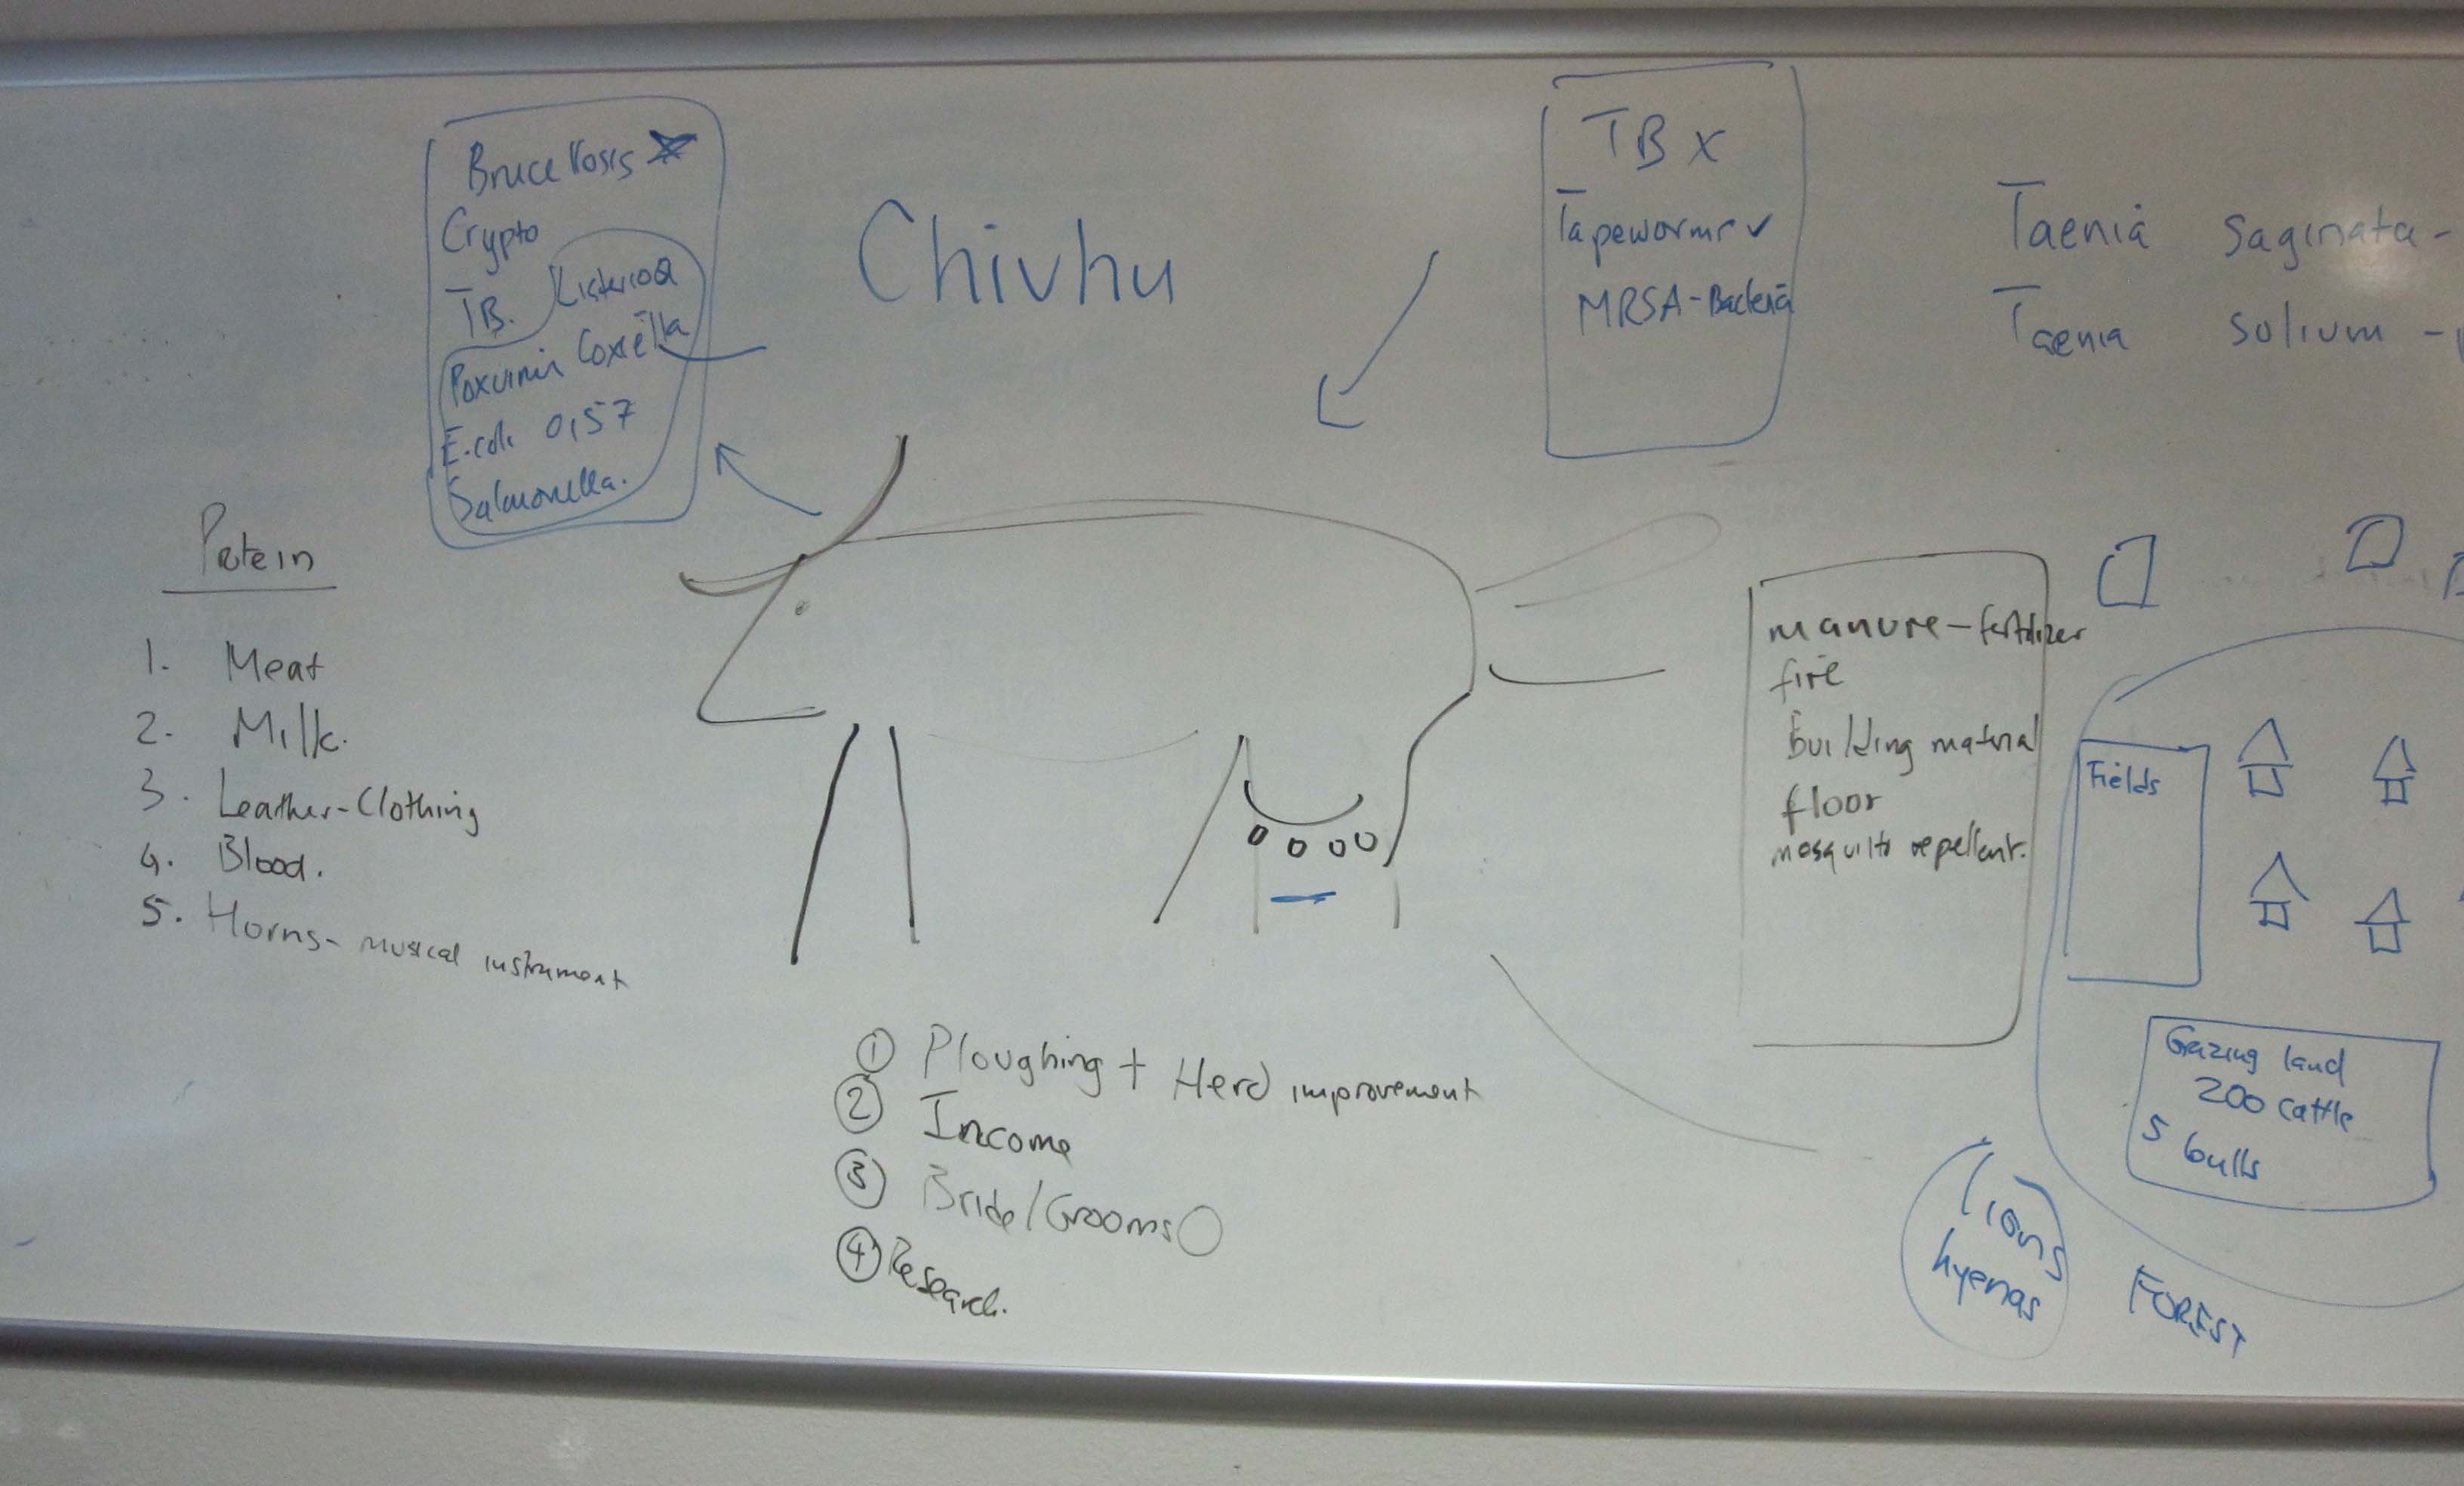 Brucellosis
Crypto
TB. Listeriosis
Poxvirus Coxiella
E.coli 0157
Salmonella.
Chivhu
TB x
Tapeworms ✓
MRSA-Bacteria
Taenia saginata-
Taenia solium -
Protein
1. Meat
2. Milk.
3. Leather-Clothing
4. Blood.
5. Horns- musical instrument
manure-fertilizer
fire
building material
floor
mosquito repellent.
① Ploughing + Herd improvement
② Income
③ Bride/Grooms
④ Research.
Fields
Grazing land
200 cattle
5 bulls
lions
hyenas
FOREST